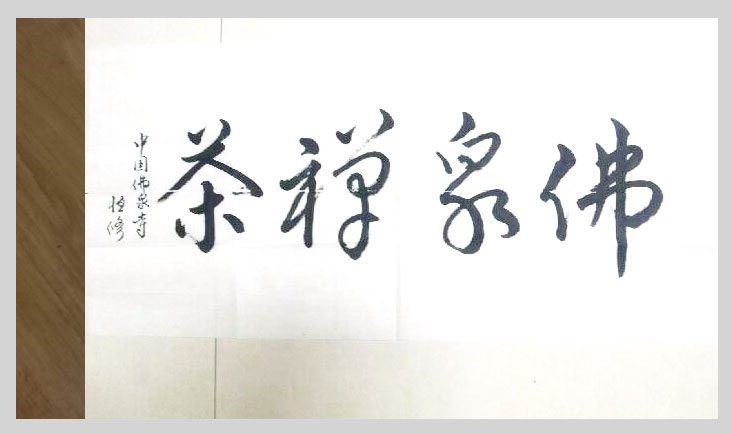 佛泉禅茶
中国佛泉寺
恒修